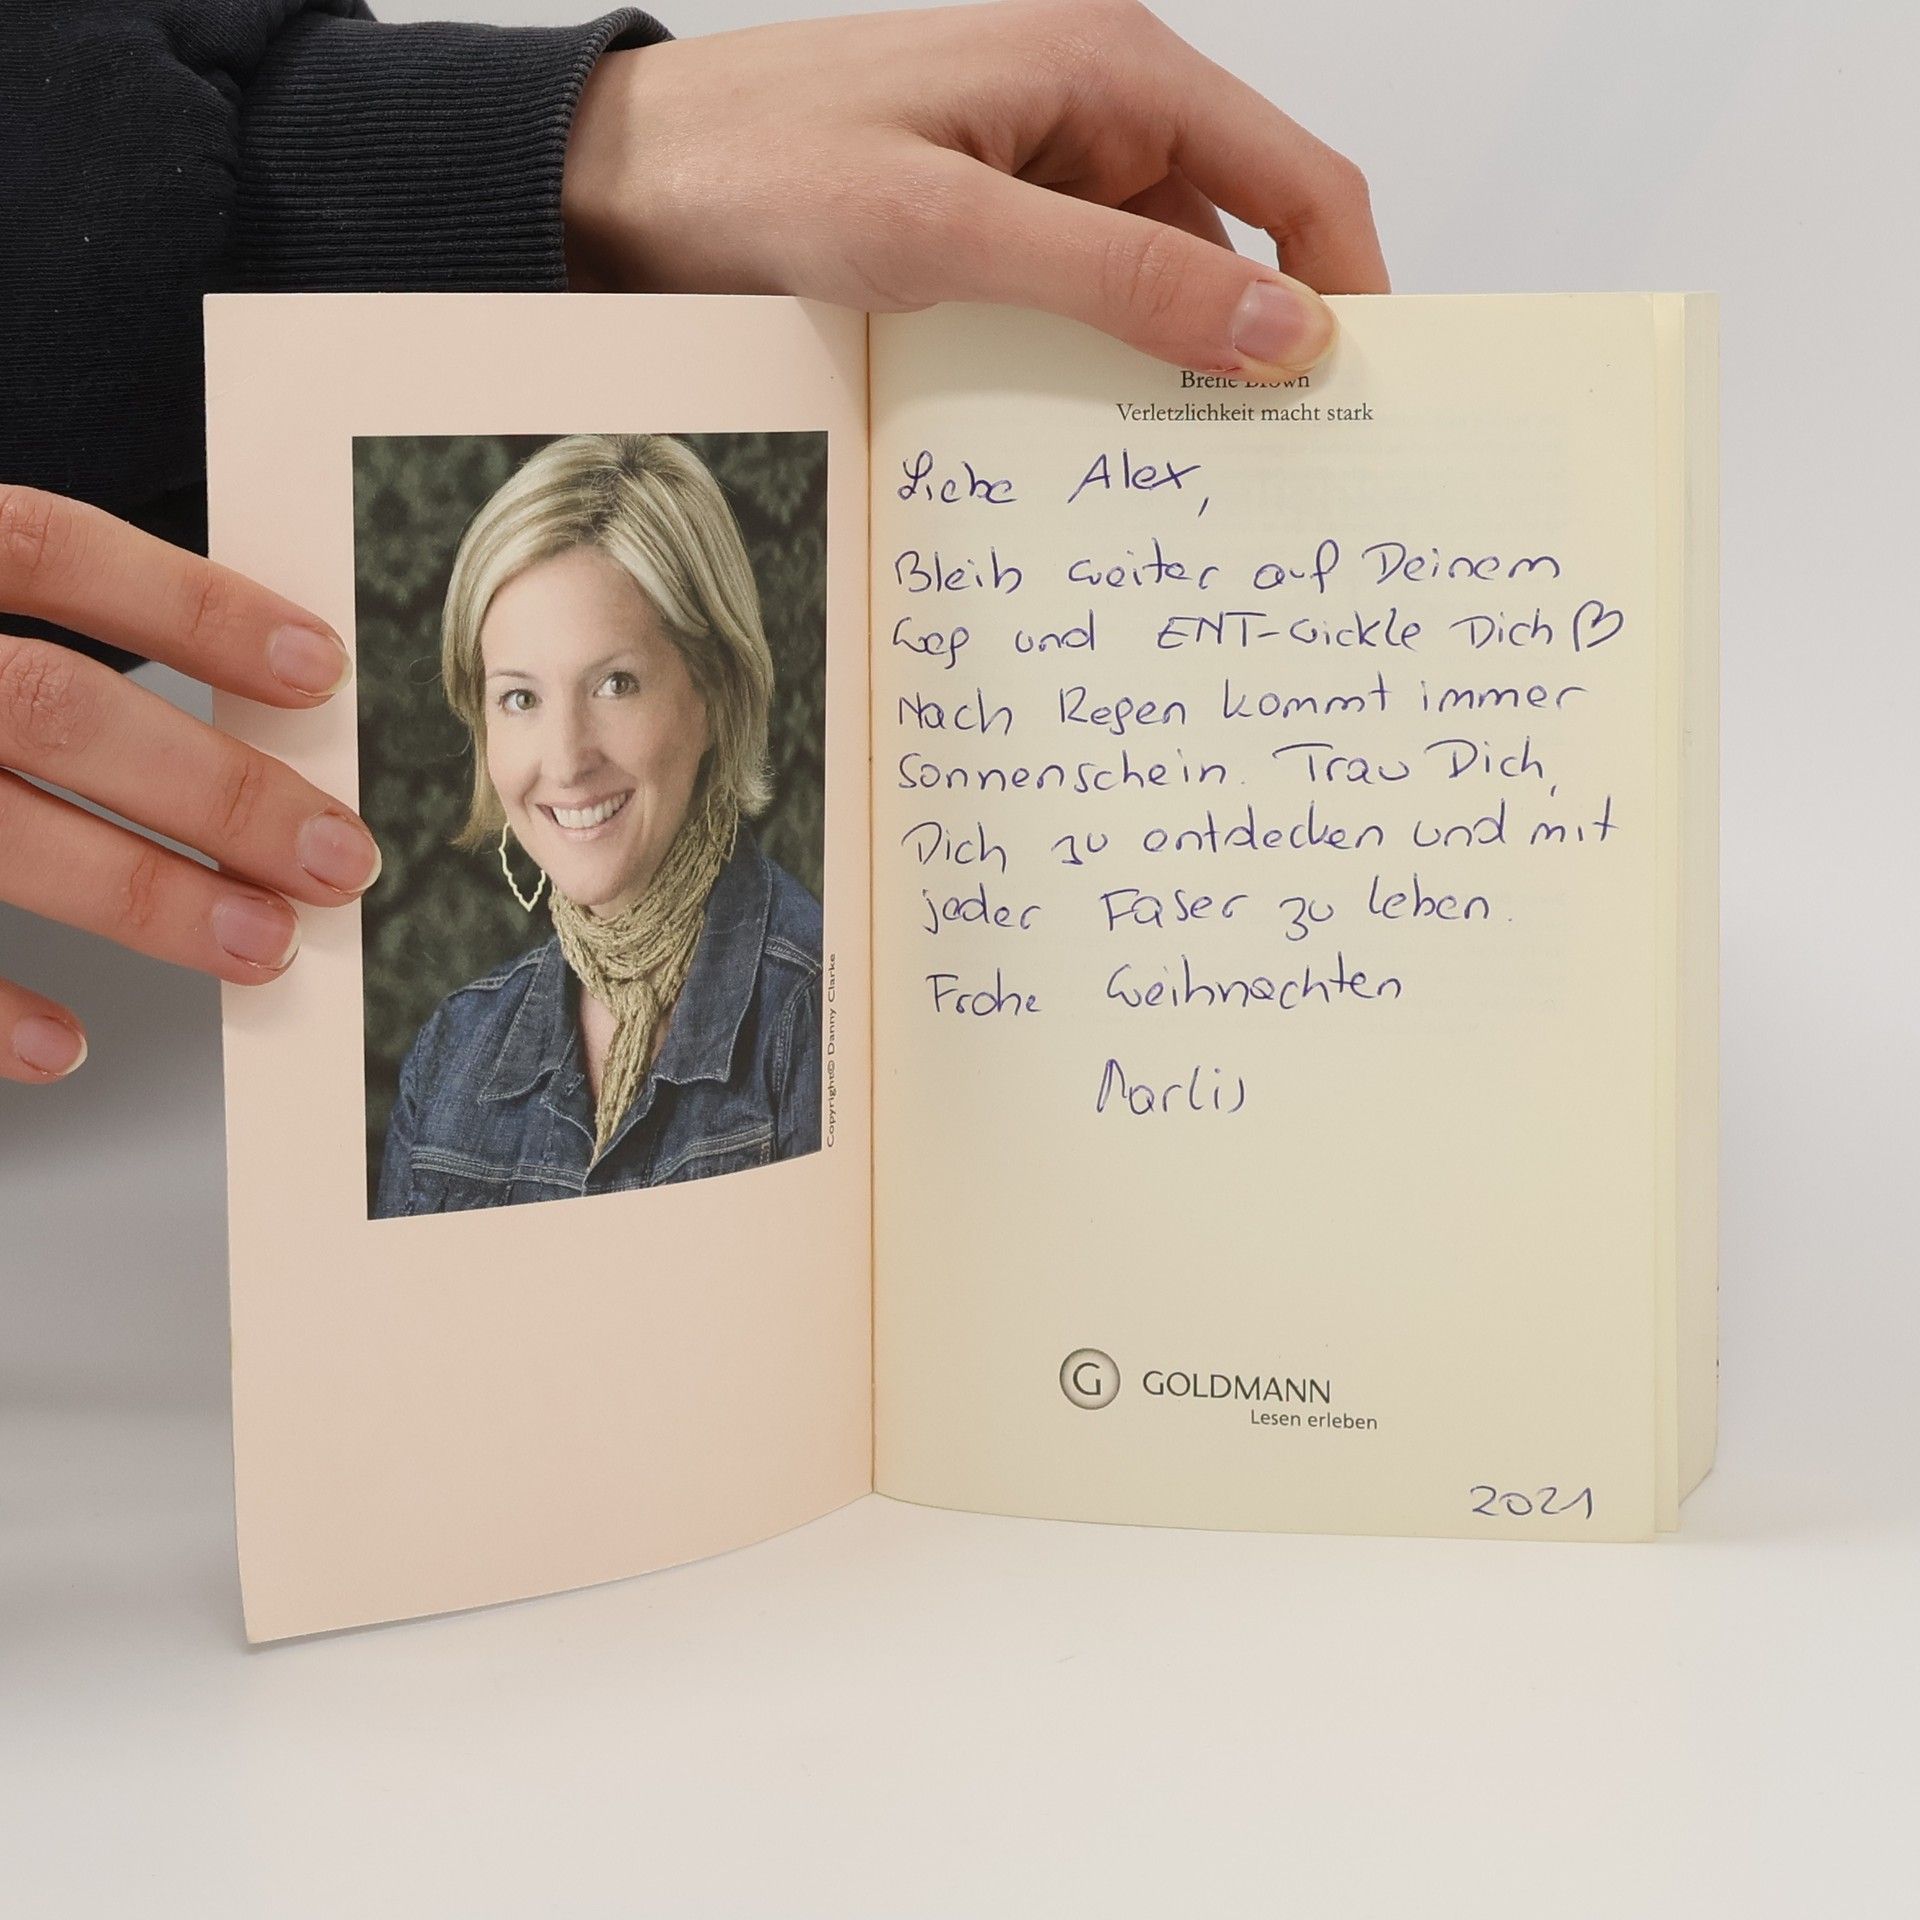 Copyright© Danny Clarke
Brené Brown
Verletzlichkeit macht stark
Liebe Alex,
Bleib weiter auf Deinem
Weg und ENT-wickle Dich ♡
Nach Regen kommt immer
Sonnenschein. Trau Dich,
Dich zu entdecken und mit
jeder Faser zu leben.
Frohe Weihnachten
Marlis
G GOLDMANN
Lesen erleben
2021